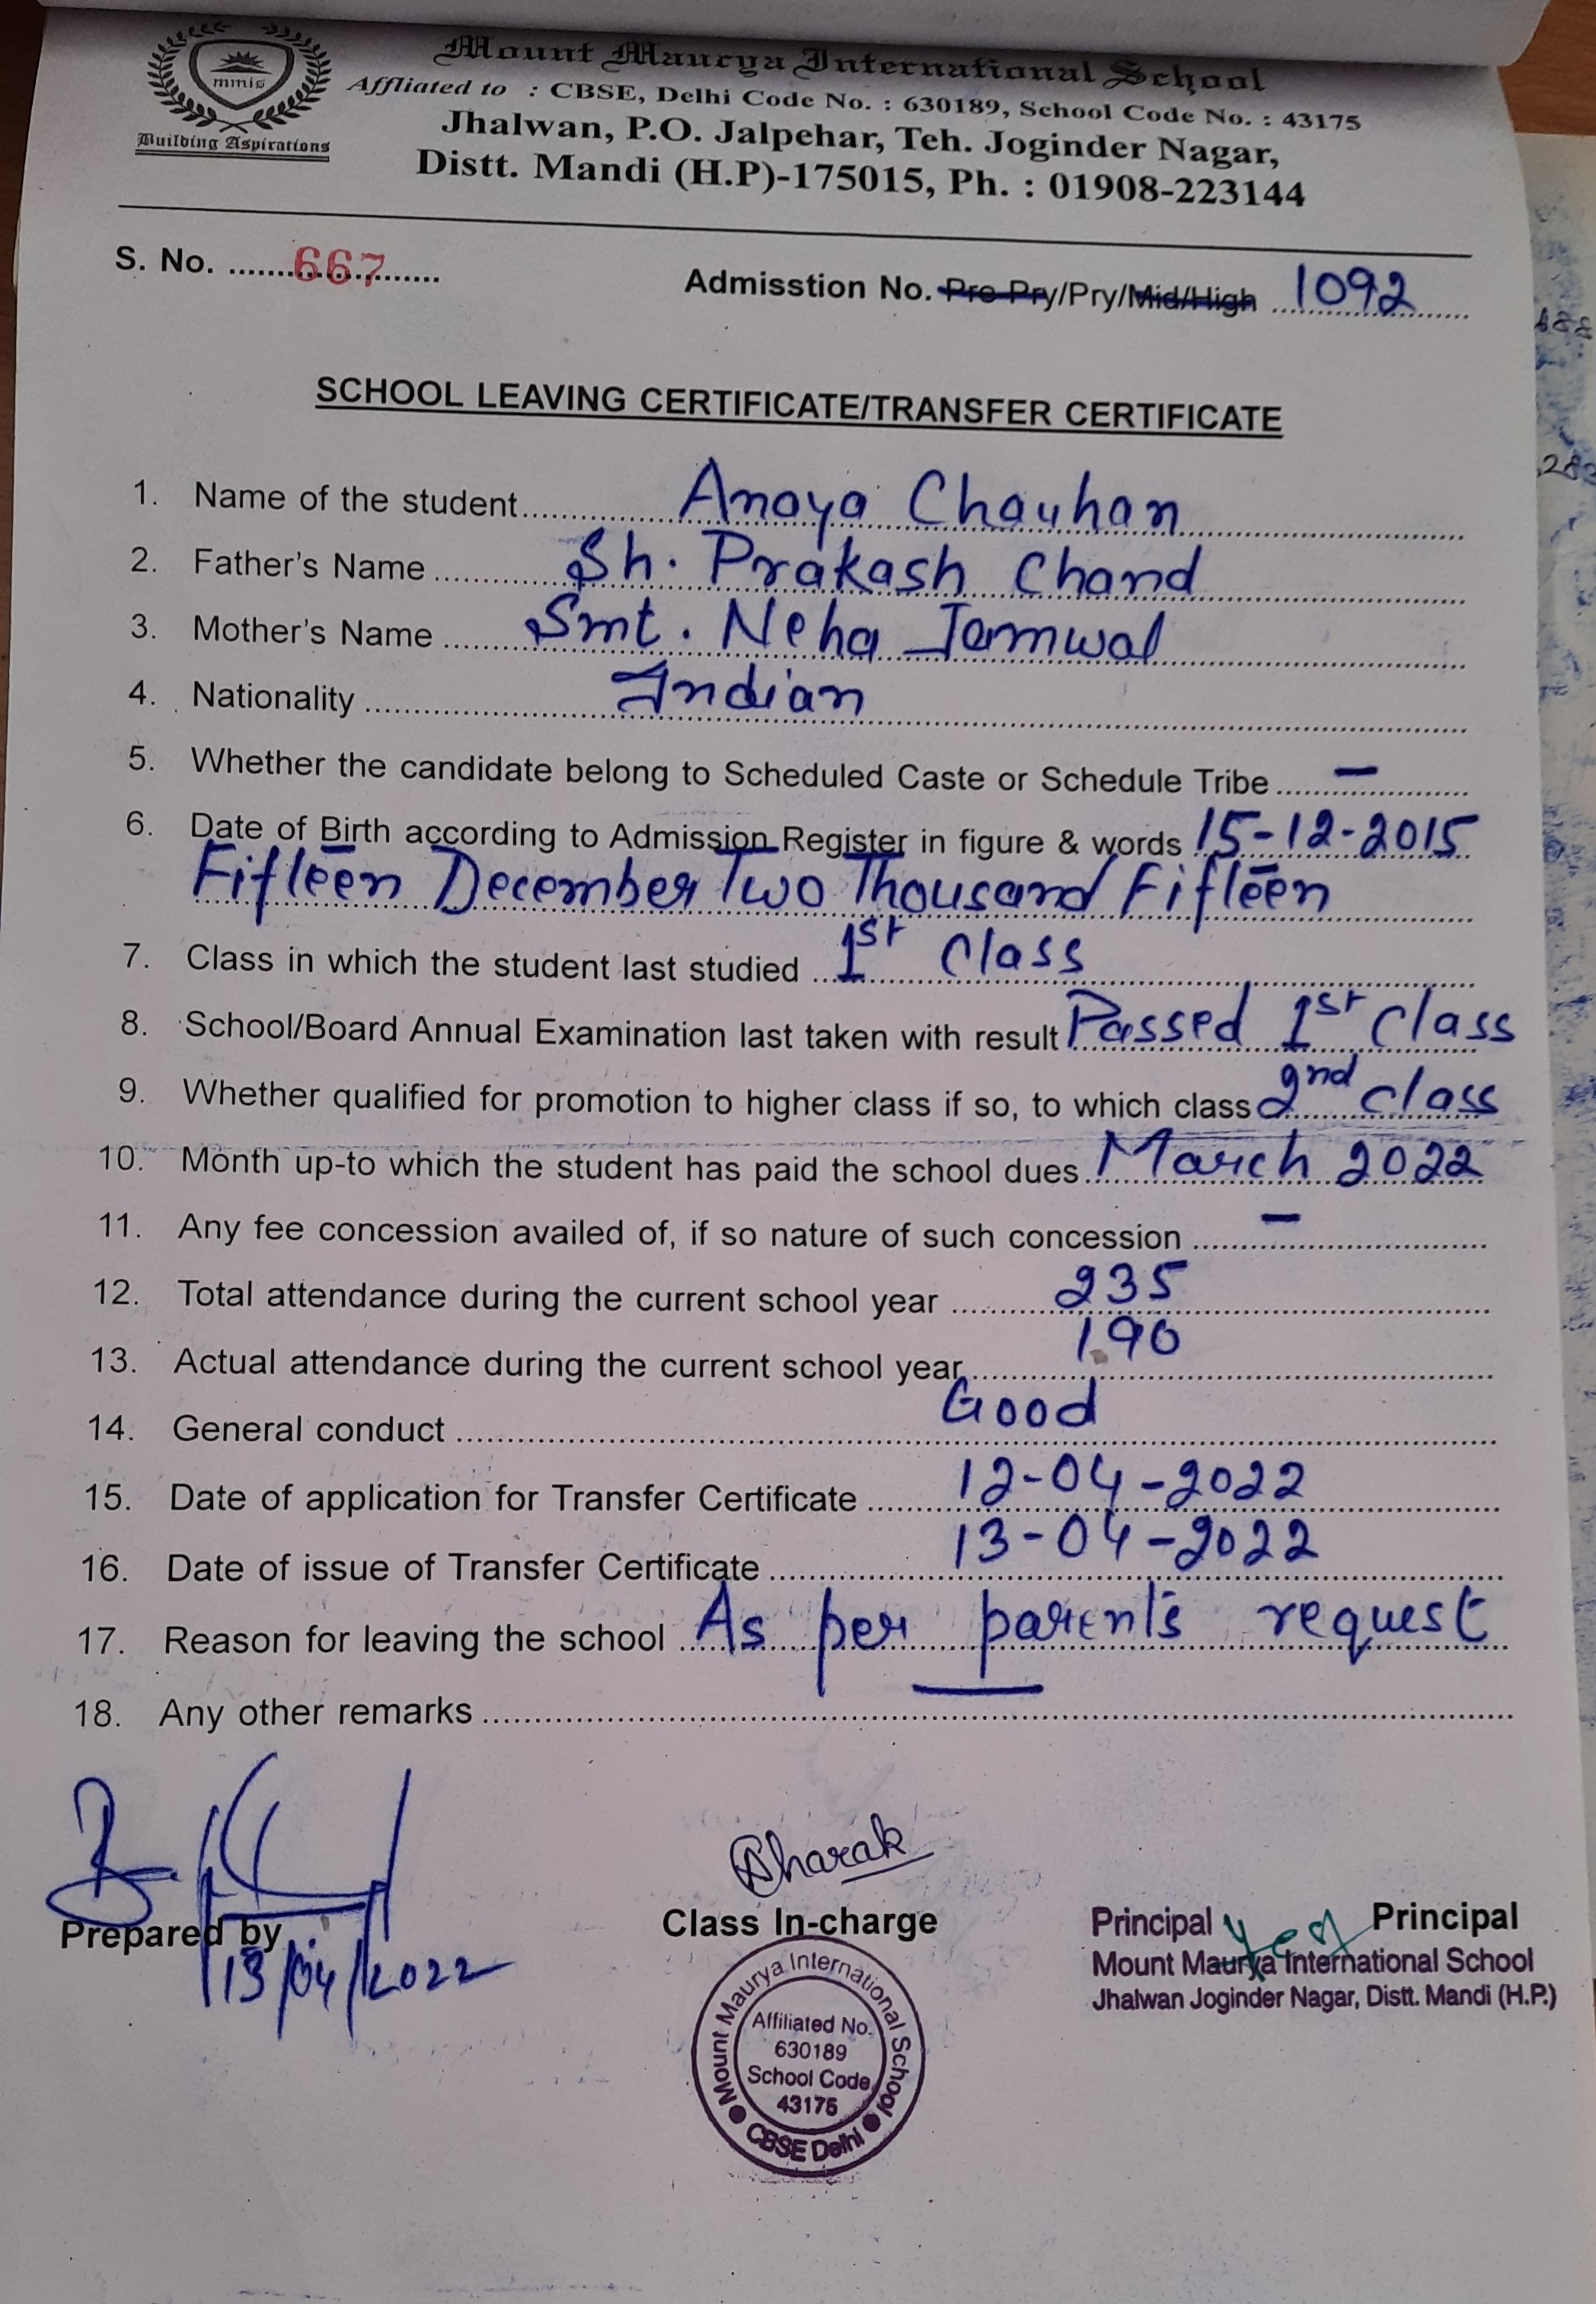 mmis
Building Aspirations
Mount Maurya International School
Affliated to : CBSE, Delhi Code No. : 630189, School Code No. : 43175
Jhalwan, P.O. Jalpehar, Teh. Joginder Nagar,
Distt. Mandi (H.P)-175015, Ph. : 01908-223144
S. No. ........667........
Admisstion No. Pre-Pry/Pry/Mid/High ....1092....
SCHOOL LEAVING CERTIFICATE/TRANSFER CERTIFICATE
1. Name of the student........ Anaya Chauhan
2. Father's Name ........ Sh. Prakash Chand
3. Mother's Name ........ Smt. Neha Jamwal
4. Nationality ........ Indian
5. Whether the candidate belong to Scheduled Caste or Schedule Tribe ........ –
6. Date of Birth according to Admission Register in figure & words 15-12-2015
Fifteen December Two Thousand Fifteen
7. Class in which the student last studied .... 1st Class
8. School/Board Annual Examination last taken with result Passed 1st Class
9. Whether qualified for promotion to higher class if so, to which class 2nd class
10. Month up-to which the student has paid the school dues.. March 2022
11. Any fee concession availed of, if so nature of such concession ........ –
12. Total attendance during the current school year ........ 235
13. Actual attendance during the current school year........ 190
14. General conduct ........ Good
15. Date of application for Transfer Certificate ........ 12-04-2022
16. Date of issue of Transfer Certificate ........ 13-04-2022
17. Reason for leaving the school .. As per parent's request
18. Any other remarks ........ —
Prepared by
13/04/2022
Bharak
Class In-charge
Principal
Principal
Mount Maurya International School
Jhalwan Joginder Nagar, Distt. Mandi (H.P.)
Mount Maurya International School
Affiliated No.
630189
School Code
43175
CBSE Delhi